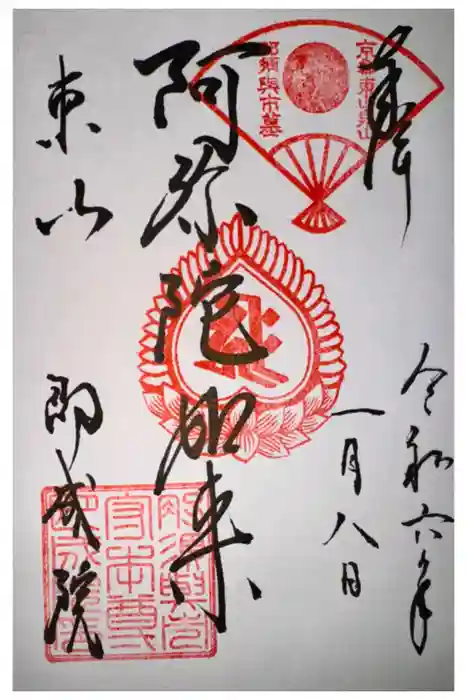 奉拝
令和六年
一月八日
京都東山泉山
那須與市墓
阿弥陀如来
東山
即成院
那須與市
守本尊
即成院